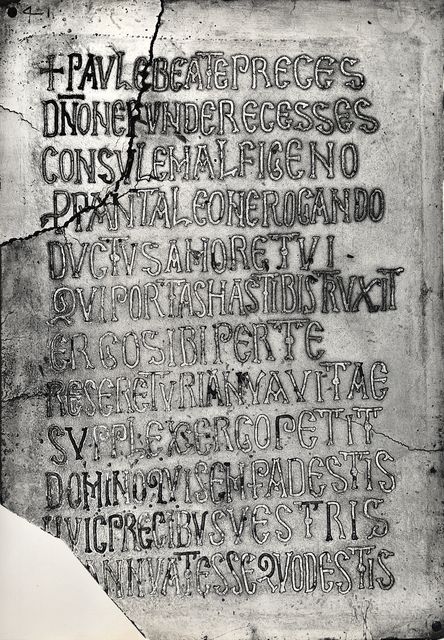 4-1
+PAVLE BEATE PRECES
DÑO NE FVNDERE CESSES
CONSVLE MALFIGENO
PPANTALEONE ROGANDO
DVCTVS AMORE TVI
QVI PORTAS HAS TIBI STRVXIT
ERGO SIBI PER TE
RESERETVR IANVA VITAE
SVPPLEX ERGO PETIT
DOMINO QVI SEMP ADESTIS
HVIC PRECIBVS VESTRIS
ANNVAT ESSE QVOD ESTIS